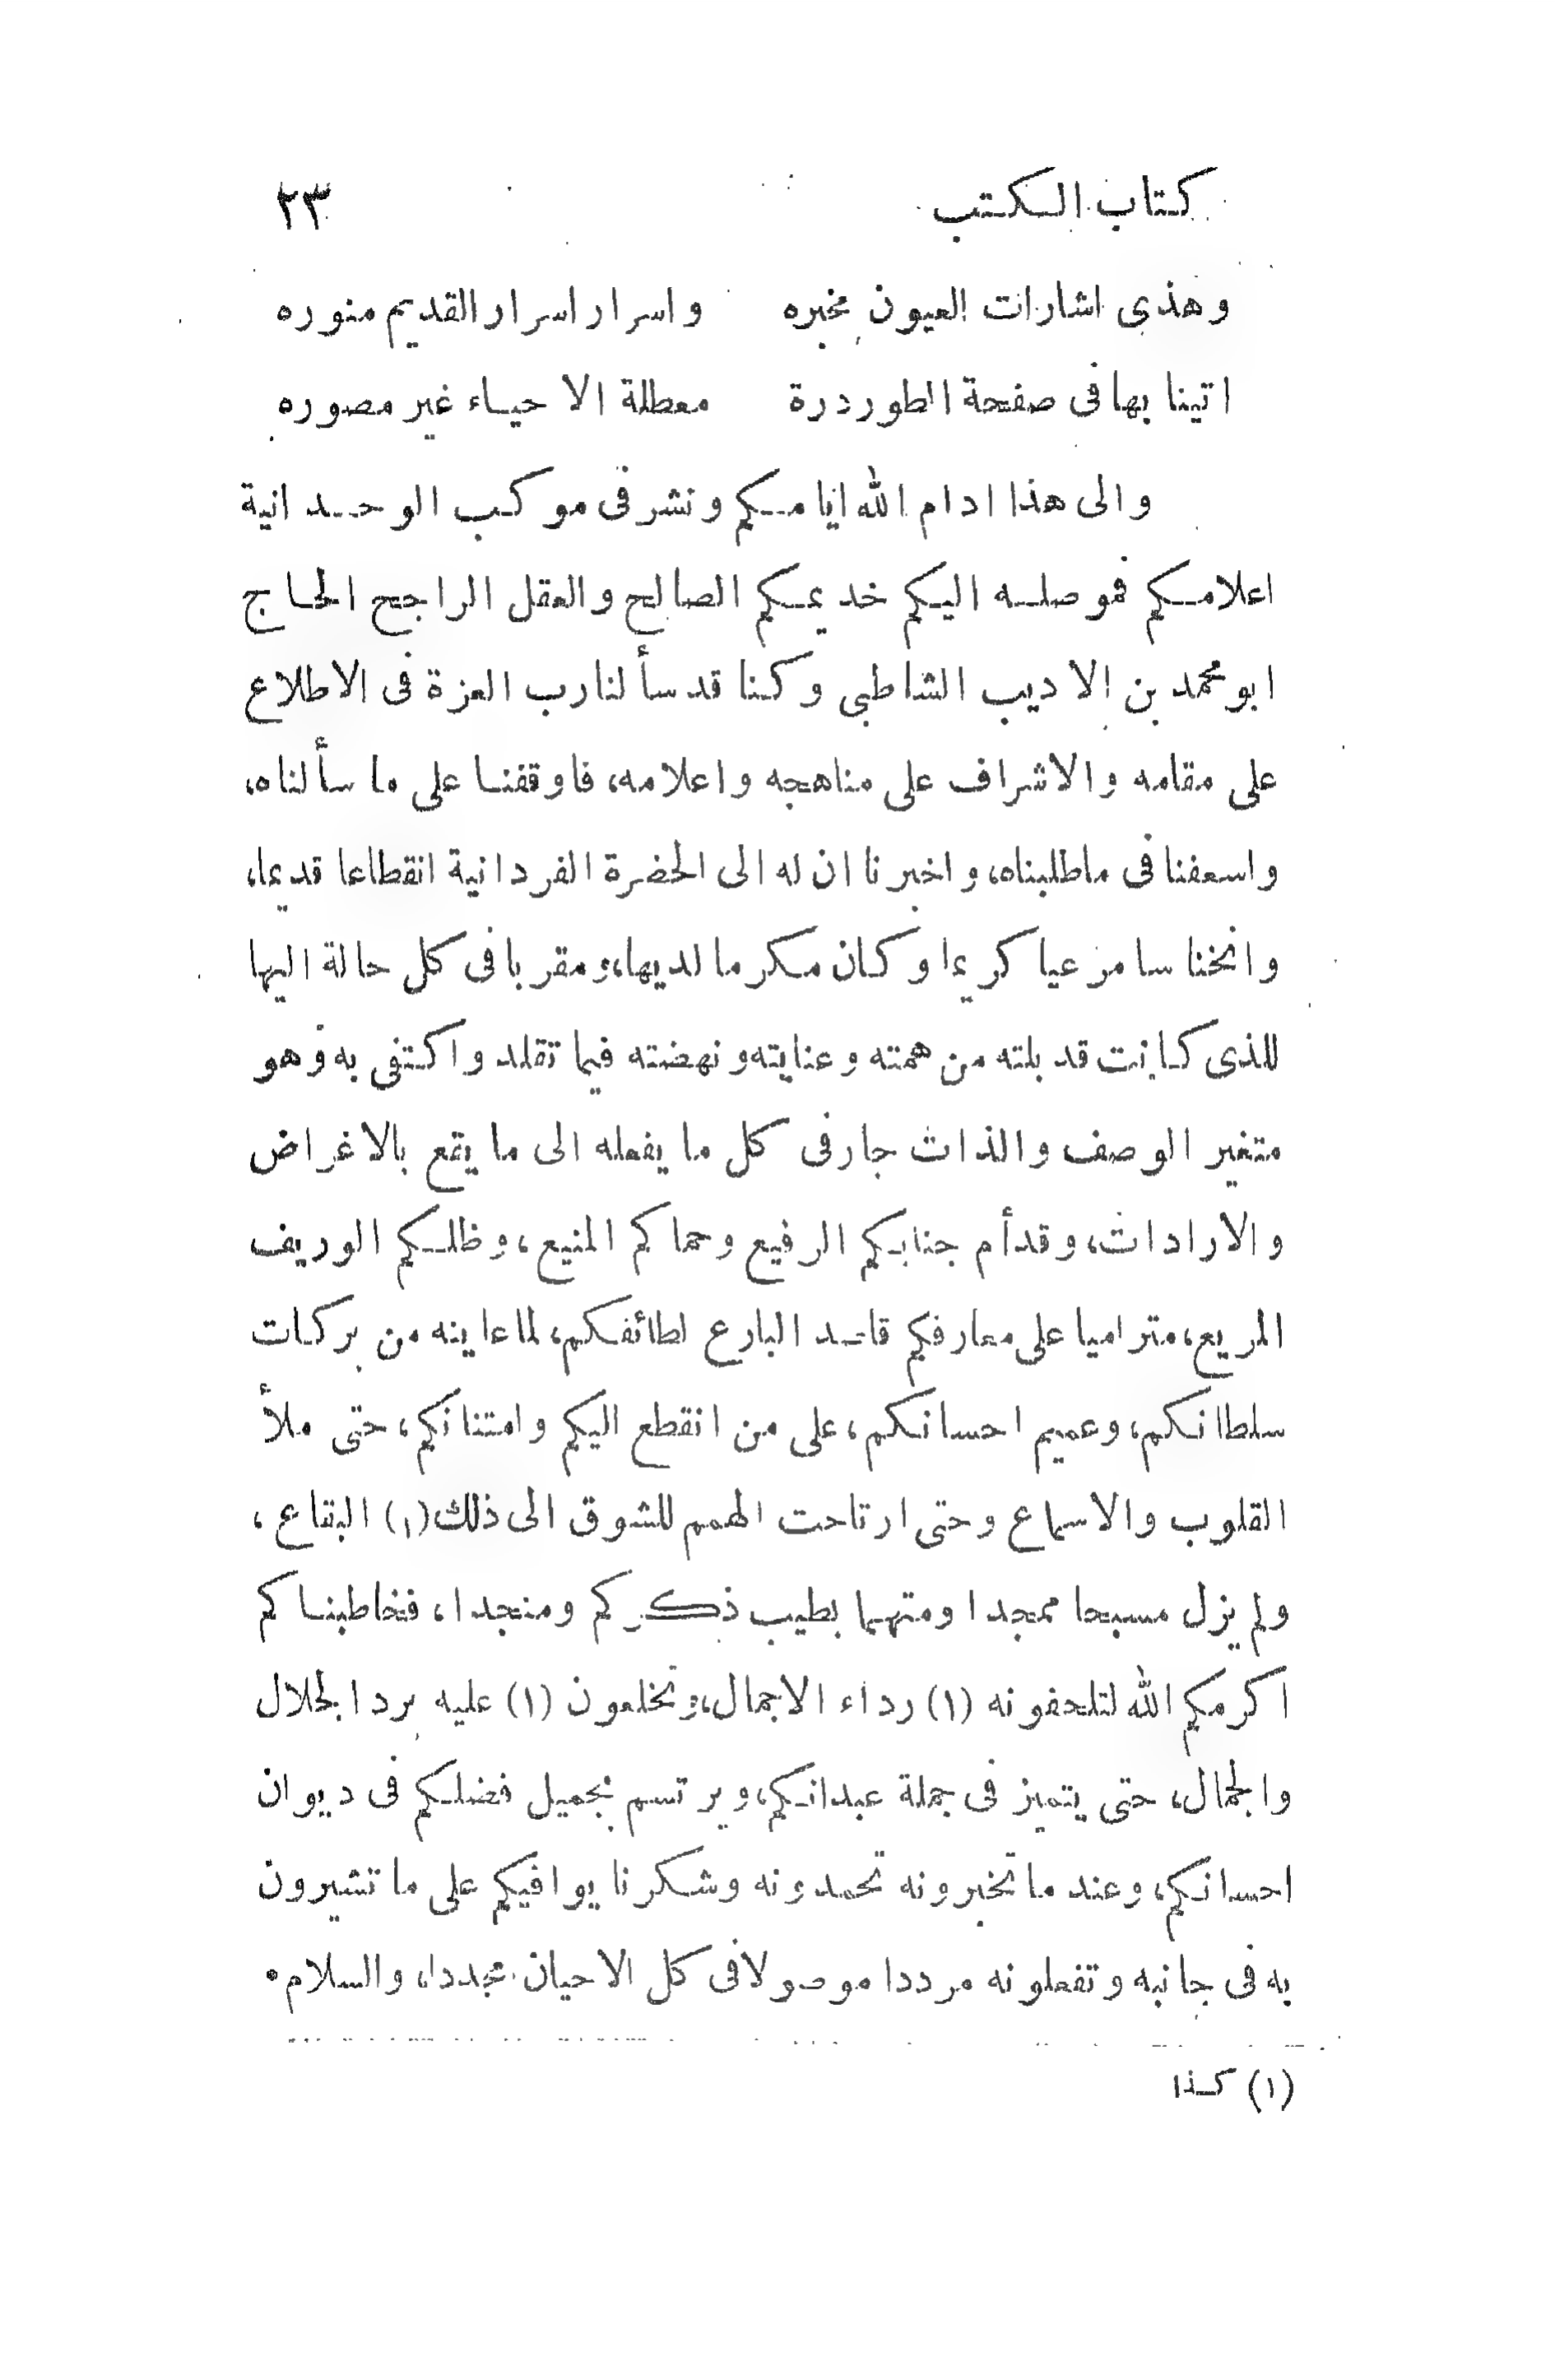 كتاب الكتب ٢٣
وهذى اشارات العيون مخبره واسرار اسرار القديم منوره
اتينا بها فى صفحة الطور درة معطلة الاحياء غير مصوره
والى هذا ادام الله ايامكم ونشر فى موكب الوحدانية
اعلامكم فموصله اليكم خديمكم الصالح والعقل الراجح الحاج
ابو محمد بن الاديب الشاطبى وكنا قد سألنا رب العزة فى الاطلاع
على مقامه والاشراف على مناهجه واعلامه، فاوقفنا على ما سألناه،
واسعفنا فى ماطلبناه، واخبرنا ان له الى الحضرة الفردانية انقطاعا قديما،
وانخنا سا مرعيا كريما وكان مكرما لديها، ومقربا فى كل حالة اليها
للذى كانت قد بلته من همته وعنايته ونهضته فيما تقلد واكتفى به وهو
متغير الوصف والذات جار فى كل ما يفعله الى ما يقع بالاغراض
والارادات، وقد أم جنابكم الرفيع وحماكم المنيع، وظلكم الوريف
المريع، متراميا على معارفكم قاصد البارع لطائفكم، لما عاينه من بركات
سلطانكم، وعميم احسانكم، على من انقطع اليكم وامتنانكم، حتى ملأ
القلوب والاسماع وحتى ارتاحت الهمم للشوق الى ذلك (١) البقاع،
ولم يزل مسبحا ممجدا ومتهما بطيب ذكركم ومنجدا، فخاطبناكم
اكرمكم الله لتلحفونه (١) رداء الاجمال، وتخلعون (١) عليه برد الجلال
والجمال، حتى يتميز فى جملة عبدانكم، ويرتسم بجميل فضلكم فى ديوان
احسانكم، وعند ما تخبرونه تحمدونه وشكرنا يوافيكم على ما تشيرون
به فى جانبه وتفعلونه مرددا موصولا فى كل الاحيان مجددا، والسلام.
(١) كذا